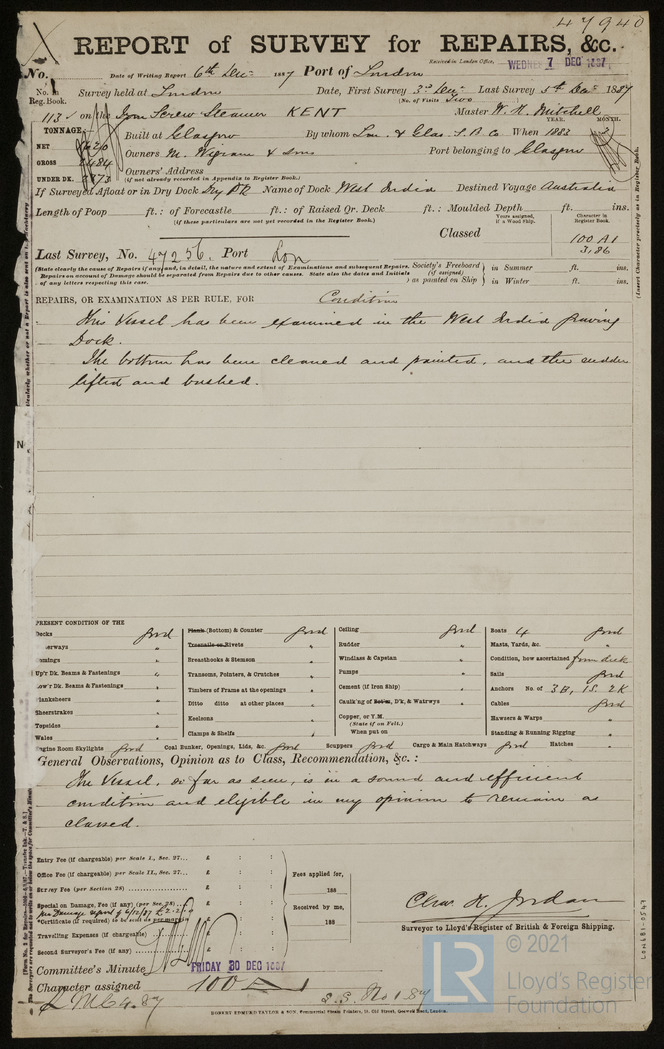 47940
REPORT of SURVEY for REPAIRS, &c.
Received in London Office, WEDNES 7 DEC 1887
No. Date of Writing Report 6th Dec 1887 Port of London
No. in Reg. Book. Survey held at London Date, First Survey 3rd Dec Last Survey 5th Dec 1887
(No. of Visits Two
113 on the Iron Screw Steamer KENT Master W. H. Mitchell
TONNAGE
NET
GROSS 2484
UNDER DK. 2373
Built at Glasgow By whom Lon. & Glas. S. B. Co When 1883 YEAR. MONTH. 3
Owners M. Wigram & Sons Port belonging to Glasgow
Owners' Address
(If not already recorded in Appendix to Register Book.)
If Surveyed Afloat or in Dry Dock Dry Dk Name of Dock West India Destined Voyage Australia
Length of Poop ft. : of Forecastle ft. : of Raised Qr. Deck ft. : Moulded Depth ft. ins.
(If these particulars are not yet recorded in the Register Book.)
Years assigned, if a Wood Ship. Character in Register Book.
Classed 100 A1
3,86
Last Survey, No. 47256. Port Lon
(State clearly the cause of Repairs if any, and, in detail, the nature and extent of Examinations and subsequent Repairs.
Repairs on account of Damage should be separated from Repairs due to other causes. State also the dates and Initials
of any letters respecting this case.
Society's Freeboard (if assigned) as painted on Ship } in Summer ft. ins.
in Winter ft. ins.
REPAIRS, OR EXAMINATION AS PER RULE, FOR Condition
This Vessel has been examined in the West India Graving
Dock.
The bottom has been cleaned and painted, and the rudder
lifted and bushed.
PRESENT CONDITION OF THE
Decks good
Upr' Dk. Beams & Fastenings "
Low'r Dk. Beams & Fastenings "
Planksheers "
Sheerstrakes "
Topsides "
Wales "
Engine Room Skylights good
Plank (Bottom) & Counter good
Treenails or Rivets "
Breasthooks & Stemson "
Transoms, Pointers, & Crutches "
Timbers of Frame at the openings "
Ditto ditto at other places "
Keelsons "
Clamps & Shelfs "
Coal Bunker, Openings, Lids, &c. good
Ceiling good
Rudder "
Windlass & Capstan "
Pumps "
Cement (if Iron Ship) "
Caulk'ng of Bottm, D'k, & Watrwys "
Copper, or Y.M.
(State if on Felt.)
When put on
Scuppers good
Boats 4 good
Masts, Yards, &c. "
Condition, how ascertained from deck
Sails good
Anchors No. of 3B, 1S. 2K
Cables good
Hawsers & Warps "
Standing & Running Rigging "
Cargo & Main Hatchways good Hatches "
General Observations, Opinion as to Class, Recommendation, &c. :
The Vessel, so far as seen, is in a sound and efficient
condition and eligible in my opinion to remain as
classed.
Entry Fee (if chargeable) per Scale I., Sec. 27... £ : :
Office Fee (if chargeable) per Scale II., Sec. 27... £ : :
Survey Fee (per Section 28) £ : :
Special on Damage, Fee (if any) (per Sec. 28) £ : :
See Damage report of 6/12/87 £2.2.0
*Certificate (if required) to be sent as per margin
Travelling Expenses (if chargeable) £ : :
Second Surveyor's Fee (if any) £ : :
Fees applied for,
188
Received by me,
188
Chas. H. Jordan
Surveyor to Lloyd's Register of British & Foreign Shipping.
Committee's Minute FRIDAY 30 DEC 1887
Character assigned 100 A
L.M.C. 4.87
S.S. No 1.87
ROBERT EDMUND TAYLOR & SON, Commercial Steam Printers, 19, Old Street, Goswell Road, London.
LON681-0547
LR
© 2021
Lloyd's Register
Foundation